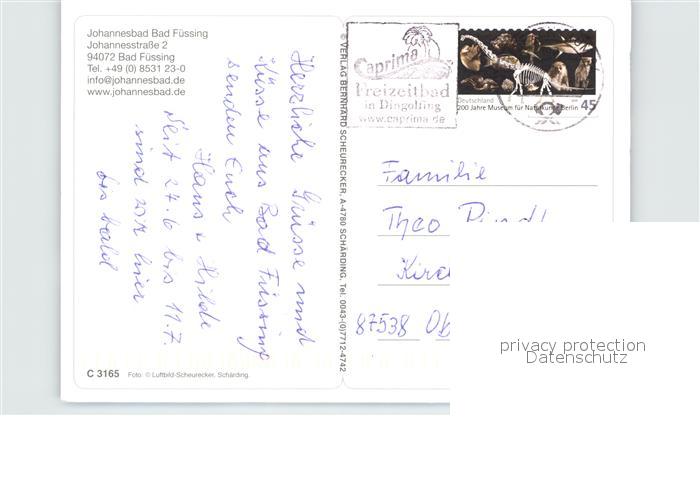 Johannesbad Bad Füssing
Johannesstraße 2
94072 Bad Füssing
Tel. +49 (0) 8531 23-0
info@johannesbad.de
www.johannesbad.de
Herzliche Grüsse und
Küsse aus Bad Füssing
senden Euch
Hans & Hilde
Seit 27.6 bis 11.7.
sind wir hier
bis bald
C 3165 Foto: © Luftbild-Scheurecker, Schärding.
© VERLAG BERNHARD SCHEURECKER, A-4780 SCHÄRDING, Tel. 0043-(0)7712-4742
Caprima
Freizeitbad
in Dingolfing
www.caprima.de
Deutschland
200 Jahre Museum für Naturkunde Berlin 45
Familie
Theo
87538
privacy protection
Datenschutz